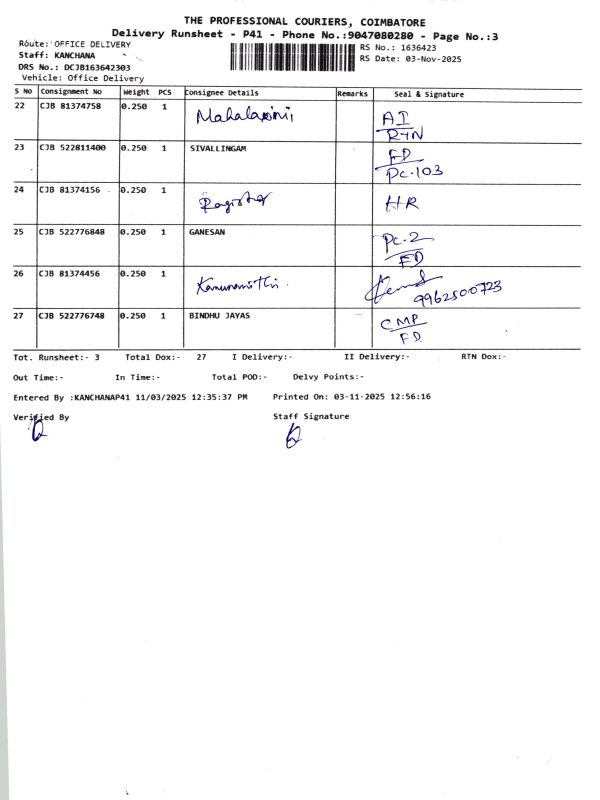 THE PROFESSIONAL COURIERS, COIMBATORE
Delivery Runsheet - P41 - Phone No.:9047080280 - Page No.:3
Route: OFFICE DELIVERY
RS No.: 1636423
Staff: KANCHANA
RS Date: 03-Nov-2025
DRS No.: DCJB163642303
Vehicle: Office Delivery
S NO Consignment No Weight PCS Consignee Details Remarks Seal & Signature
22 CJB 81374758 0.250 1 Mahalaxmi AI
RTN
23 CJB 522811400 0.250 1 SIVALLINGAM FD
PC.103
24 CJB 81374156 0.250 1 HR
25 CJB 522776848 0.250 1 GANESAN PC.2
FD
26 CJB 81374456 0.250 1
9962500723
27 CJB 522776748 0.250 1 BINDHU JAYAS CMP
FD
Tot. Runsheet:- 3 Total Dox:- 27 I Delivery:- II Delivery:- RTN Dox:-
Out Time:- In Time:- Total POD:- Delvy Points:-
Entered By :KANCHANAP41 11/03/2025 12:35:37 PM Printed On: 03-11-2025 12:56:16
Verified By Staff Signature